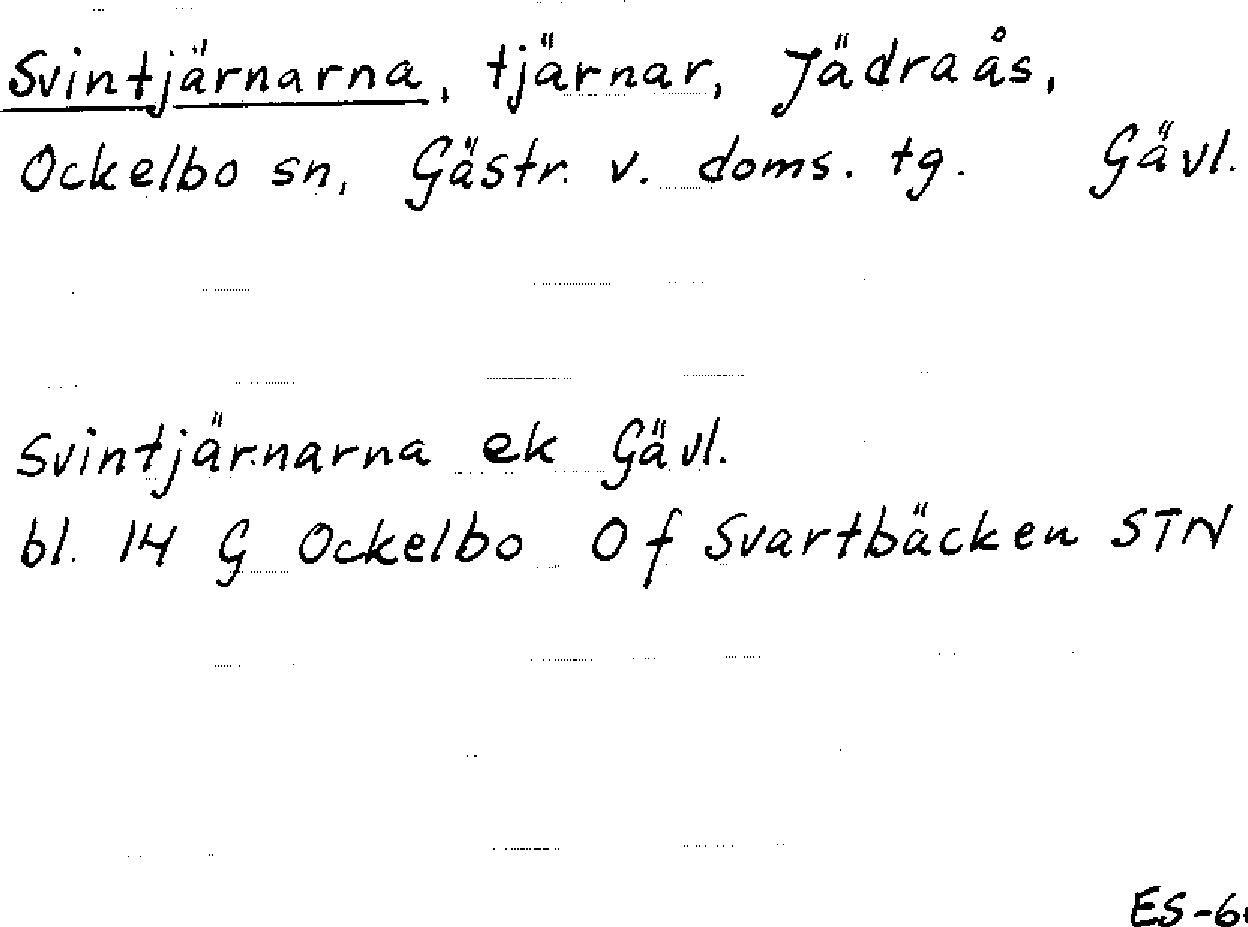 Svintjärnarna, tjärnar, Jädraås,
Ockelbo sn, Gästr. v. doms. tg. Gävl.
Svintjärnarna ek Gävl.
bl. 14 G Ockelbo O f Svartbäcken STN